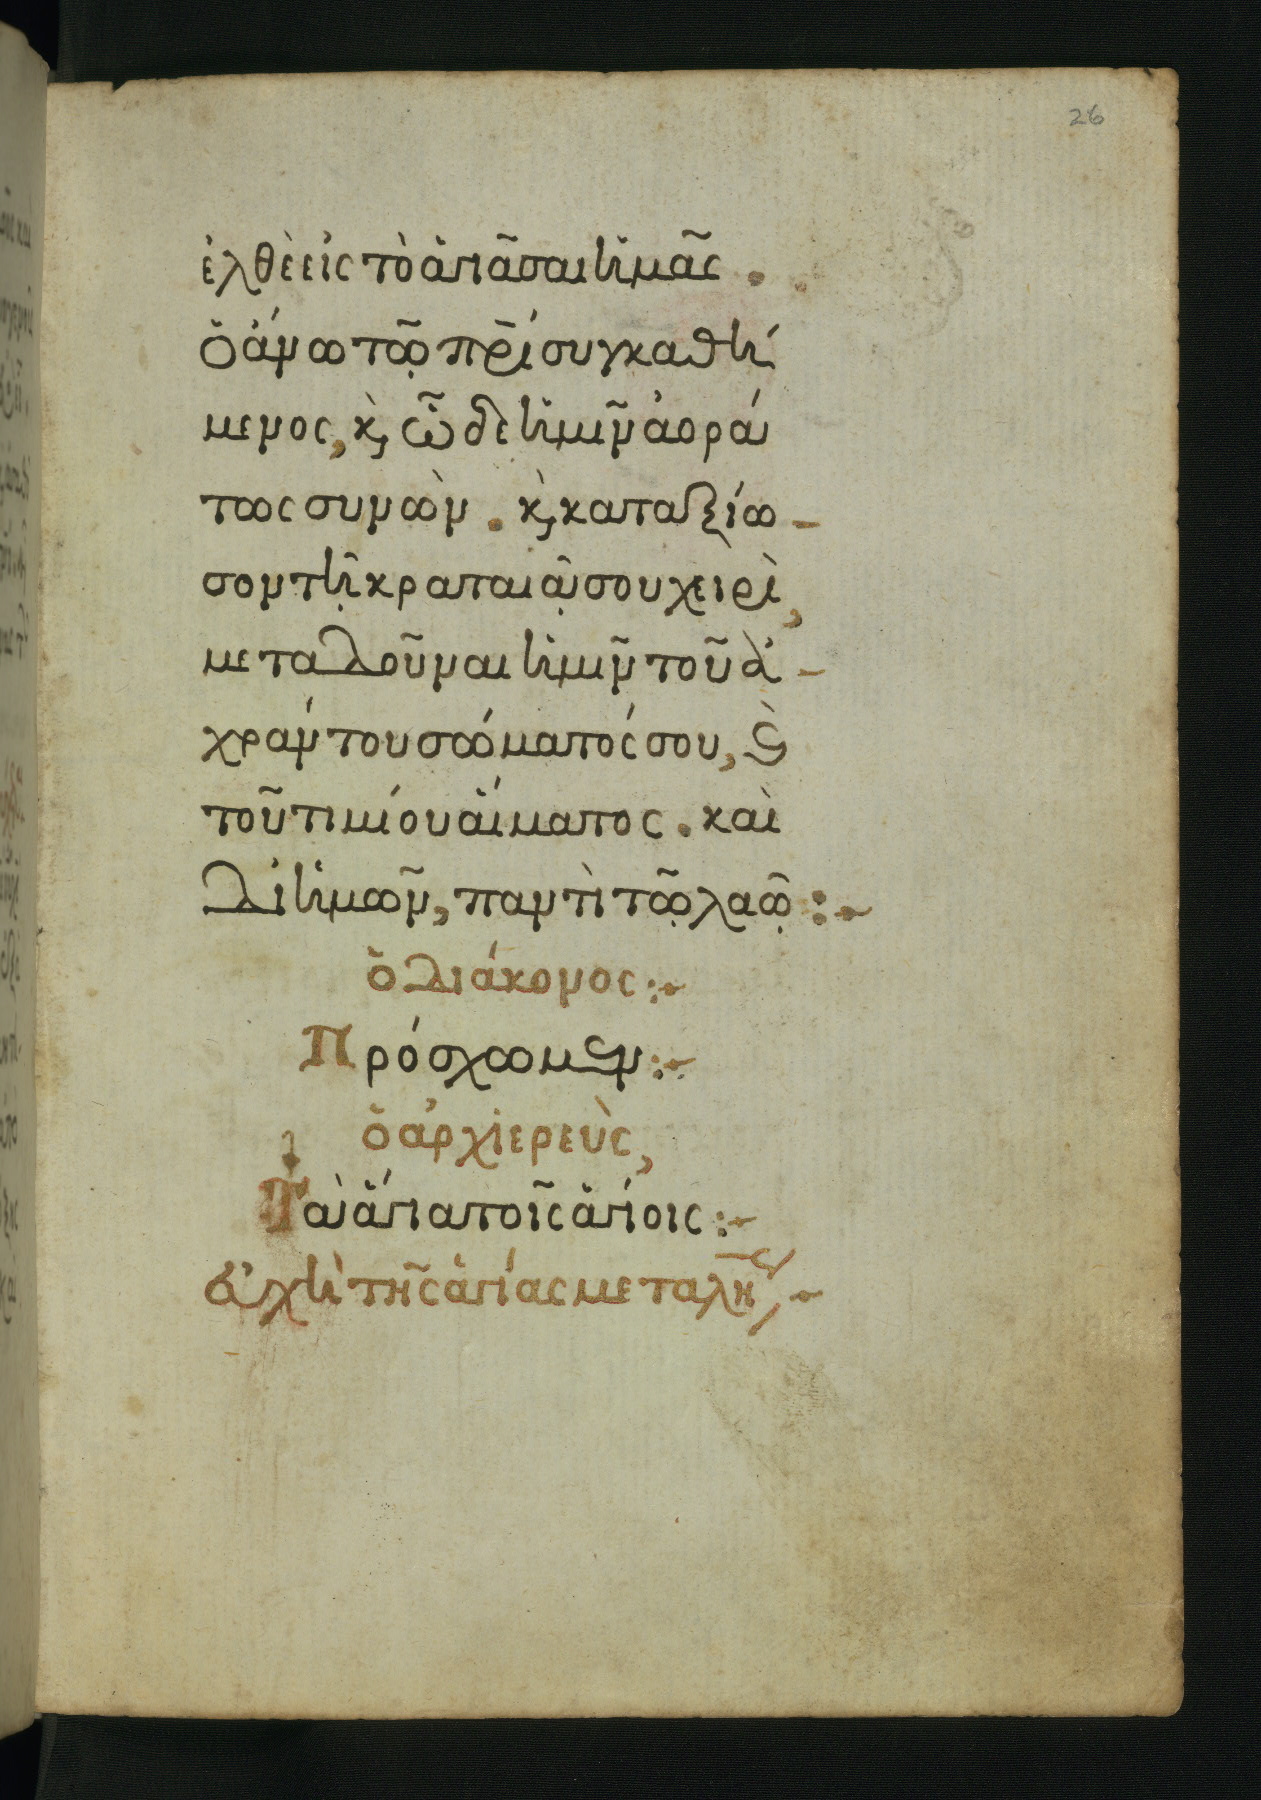 26
ἐλθὲ εἰς τὸ ἁγιᾶσαι ἡμᾶς .
ὁ ἄνω τῷ πρ̅ί συγκαθή
μενος, κ̀ ὧδε ἡμῖν ἀορά
τως συνὼν . κ̀ καταξίω -
σον τῇ κραταιᾷ σου χειρὶ,
μεταδοῦναι ἡμῖν τοῦ ἀ -
χράντου σώματός σου, καὶ
τοῦ τιμίου αἵματος . καὶ
δι ἡμῶν, παντὶ τῷ λαῷ :~
ὁ διάκονος :~
Πρόσχωμεν :~
ὁ ἀρχιερεὺς,
Τὰ ἅγια τοῖς ἁγίοις :~
εὐχὴ τῆς ἁγίας μεταλή~